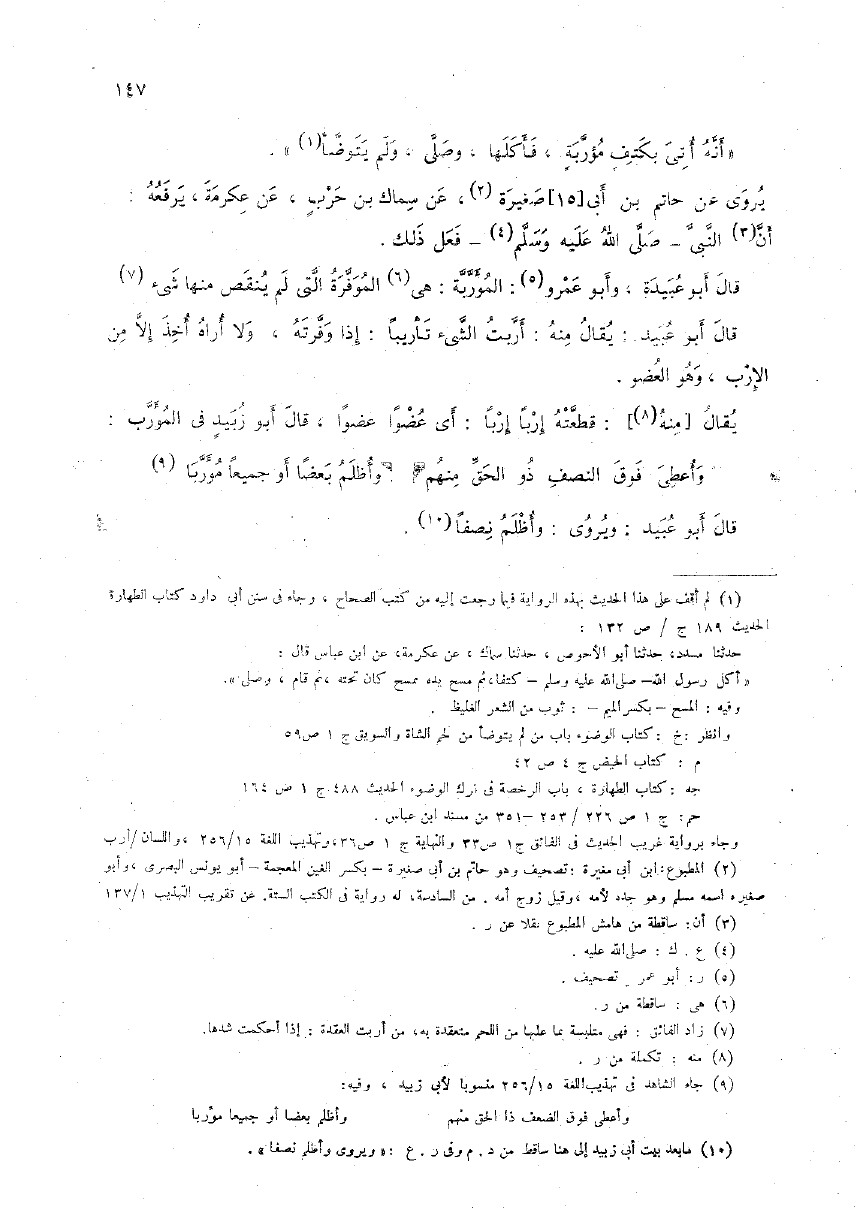 ١٤٧
« أَنَّهُ أُتِىَ بِكَتِفٍ مُؤَرَّبَةٍ ، فَأَكَلَها ، وصَلَّى ، وَلَم يَتَوضَّأ(١) » .
يُروَى عَن حاتم بن أَبى[١٥]صَغيرَة (٢) ، عَن سِماك بن حَرْبٍ ، عَن عِكرمَةَ ، يَرفَعُهُ :
أَنَّ(٣) النَّبىَّ – صَلَّى اللهُ عَلَيه وَسَلَّم(٤) – فَعَل ذَلك .
قالَ أَبو عُبَيدَةِ ، وأَبو عَمْرو(٥) : المُؤَرَّبَة : هى(٦) المُوَفَّرَةُ الَّتى لَم يُنقَص منها شَىء (٧)
قالَ أَبو عُبَيد : يُقالُ مِنهُ : أَرَّبتُ الشَّىء تَأْريباً : إذا وَفَّرتَهُ ، وَلا أُراهُ أُخِذَ إلاَّ مِن
الإرْبِ ، وَهُو العُضو .
يُقالُ [مِنهُ(٨)] : قطعَّتْهُ إرْباً إرْباً : أَى عُضْوًا عضوًا ، قالَ أَبو زُبَيدٍ فى المُؤرَّب :
وَأُعطِىَ فَوقَ النصفِ ذُو الحَقِّ مِنهُم وأُظلَمُ بَعضًا أَو جَميعاً مُؤَرَّبَا (٩)
قالَ أَبو عُبَيد : ويُروُى : وأُظْلَمُ نِصفاً(١٠) .
(١) لم أقف على هذا الحديث بهذه الرواية فيما رجعت إليه من كتب الصحاح ، وجاء فى سنن أبى داود كتاب الطهارة
الحديث ١٨٩ ج / ص ١٣٢ :
حدثنا مسدد، حدثنا أبو الأحوص ، حدثنا سماك ، عن عكرمة، عن ابن عباس قال :
« أكل رسول الله– صلى الله عليه وسلم – كتفا،ثم مسح يده بمسح كان تحته ،ثم قام ، وصلى ».
وفيه : المسح – بكسرالميم – : ثوب من الشعر الغليظ .
وانظر :خ :كتاب الوضوء باب من لم يتوضأ من لحم الشاة والسويق ج ١ ص٥٩
م : كتاب الحيض ج ٤ ص ٤٢
جه :كتاب الطهارة ، باب الرخصة فى ترك الوضوء الحديث ٤٨٨ ج ١ ص ١٦٤
حم: ج ١ ص ٢٢٦ / ٢٥٣ –٣٥١ من مسند ابن عباس .
وجاء برواية غريب الحديث فى الفائق ج١ ص٣٣ والنهاية ج ١ ص٣٦،وتهذيب اللغة ٢٥٦/١٥ ،واللسان/أرب
(٢) المطبوع:ابن أبى مغيرة :تصحيف وهو حاتم بن أبى صغيرة – بكسر الغين المعجمة –أبو يونس البصرى ،وأبو
صغيره اسمه مسلم وهو جده لأمه ،وقيل زوج أمه . من السادسة، له رواية فى الكتب الستة. عن تقريب التهذيب ١٣٧/١
(٣) أن: ساقطة من هامش المطبوع نقلا عن ر .
(٤) ع . ك : صلى الله عليه .
(٥) ر: أبو عمر تصحيف .
(٦) هى : ساقطة من ر.
(٧) زاد الفائق : فهى متلبسة بما عليها من اللحم متعقدة به، من أربت العقدة : إذا أحكمت شدها.
(٨) منه : تكملة من ر .
(٩) جاء الشاهد فى تهذيب اللغة ٢٥٦/١٥ منسوبا لأبى زبيد ، وفيه:
وأعطى فوق الضعف ذا الحق منهم وأظلم بعضا أو جميعا مؤربا
(١٠) مابعد بيت أبى زبيد إلى هنا ساقط من د . م وفى ر . ع :« ويروى وأظلم نصفا» .